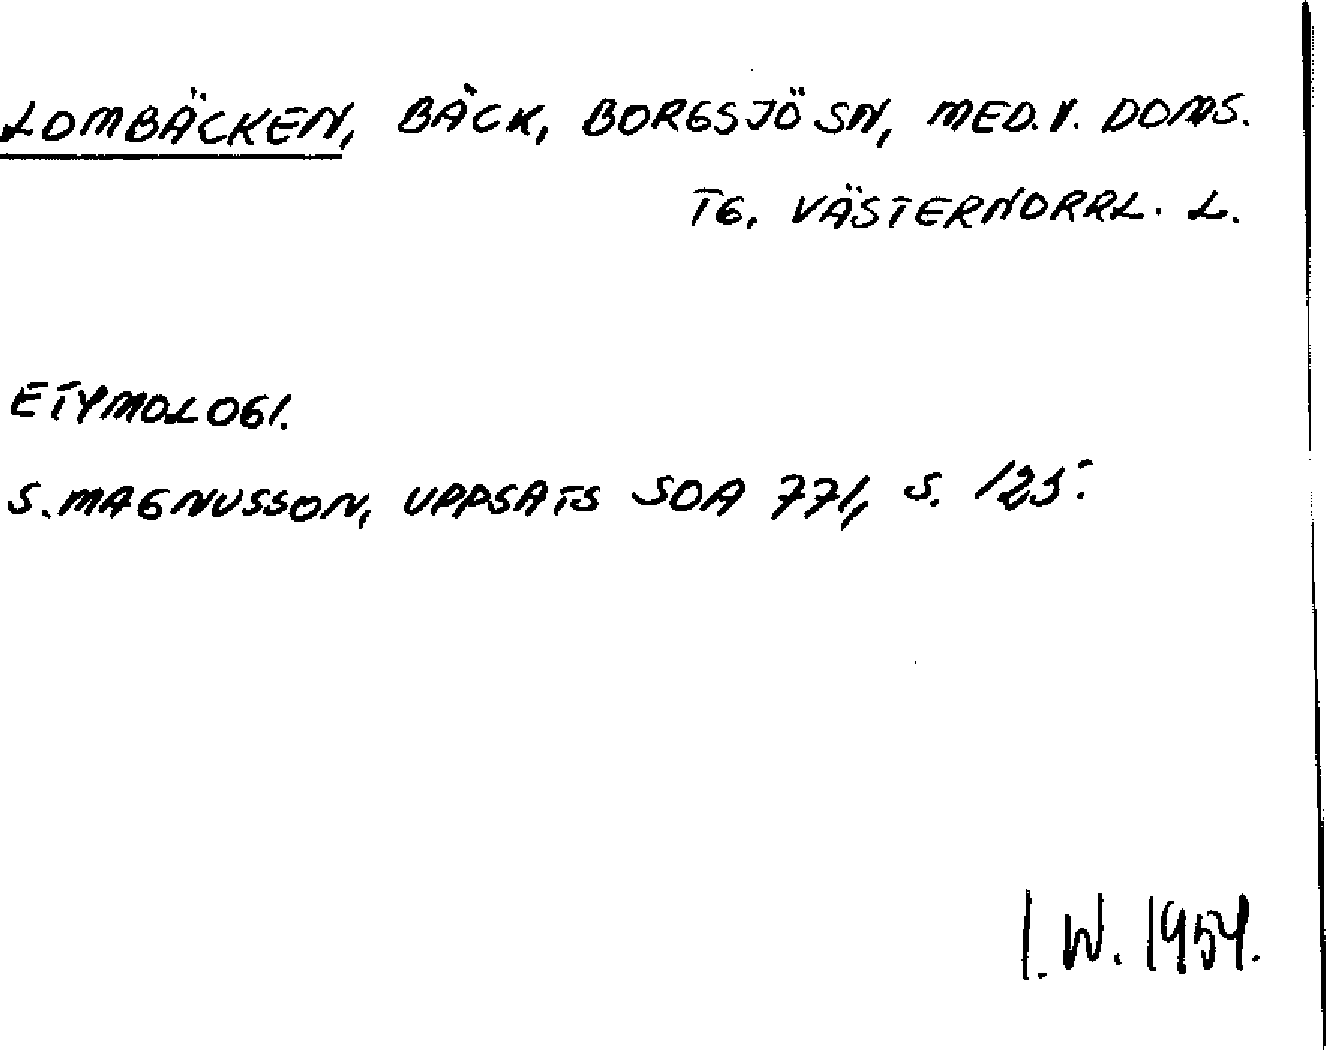 LOMBÄCKEN, BÄCK, BORGSJÖ SN, MED. V. DOMS.
TG. VÄSTERNORRL. L.
ETYMOLOGI.
S. MAGNUSSON, UPPSATS SOA 771, S. 125.
I. W. 1954.